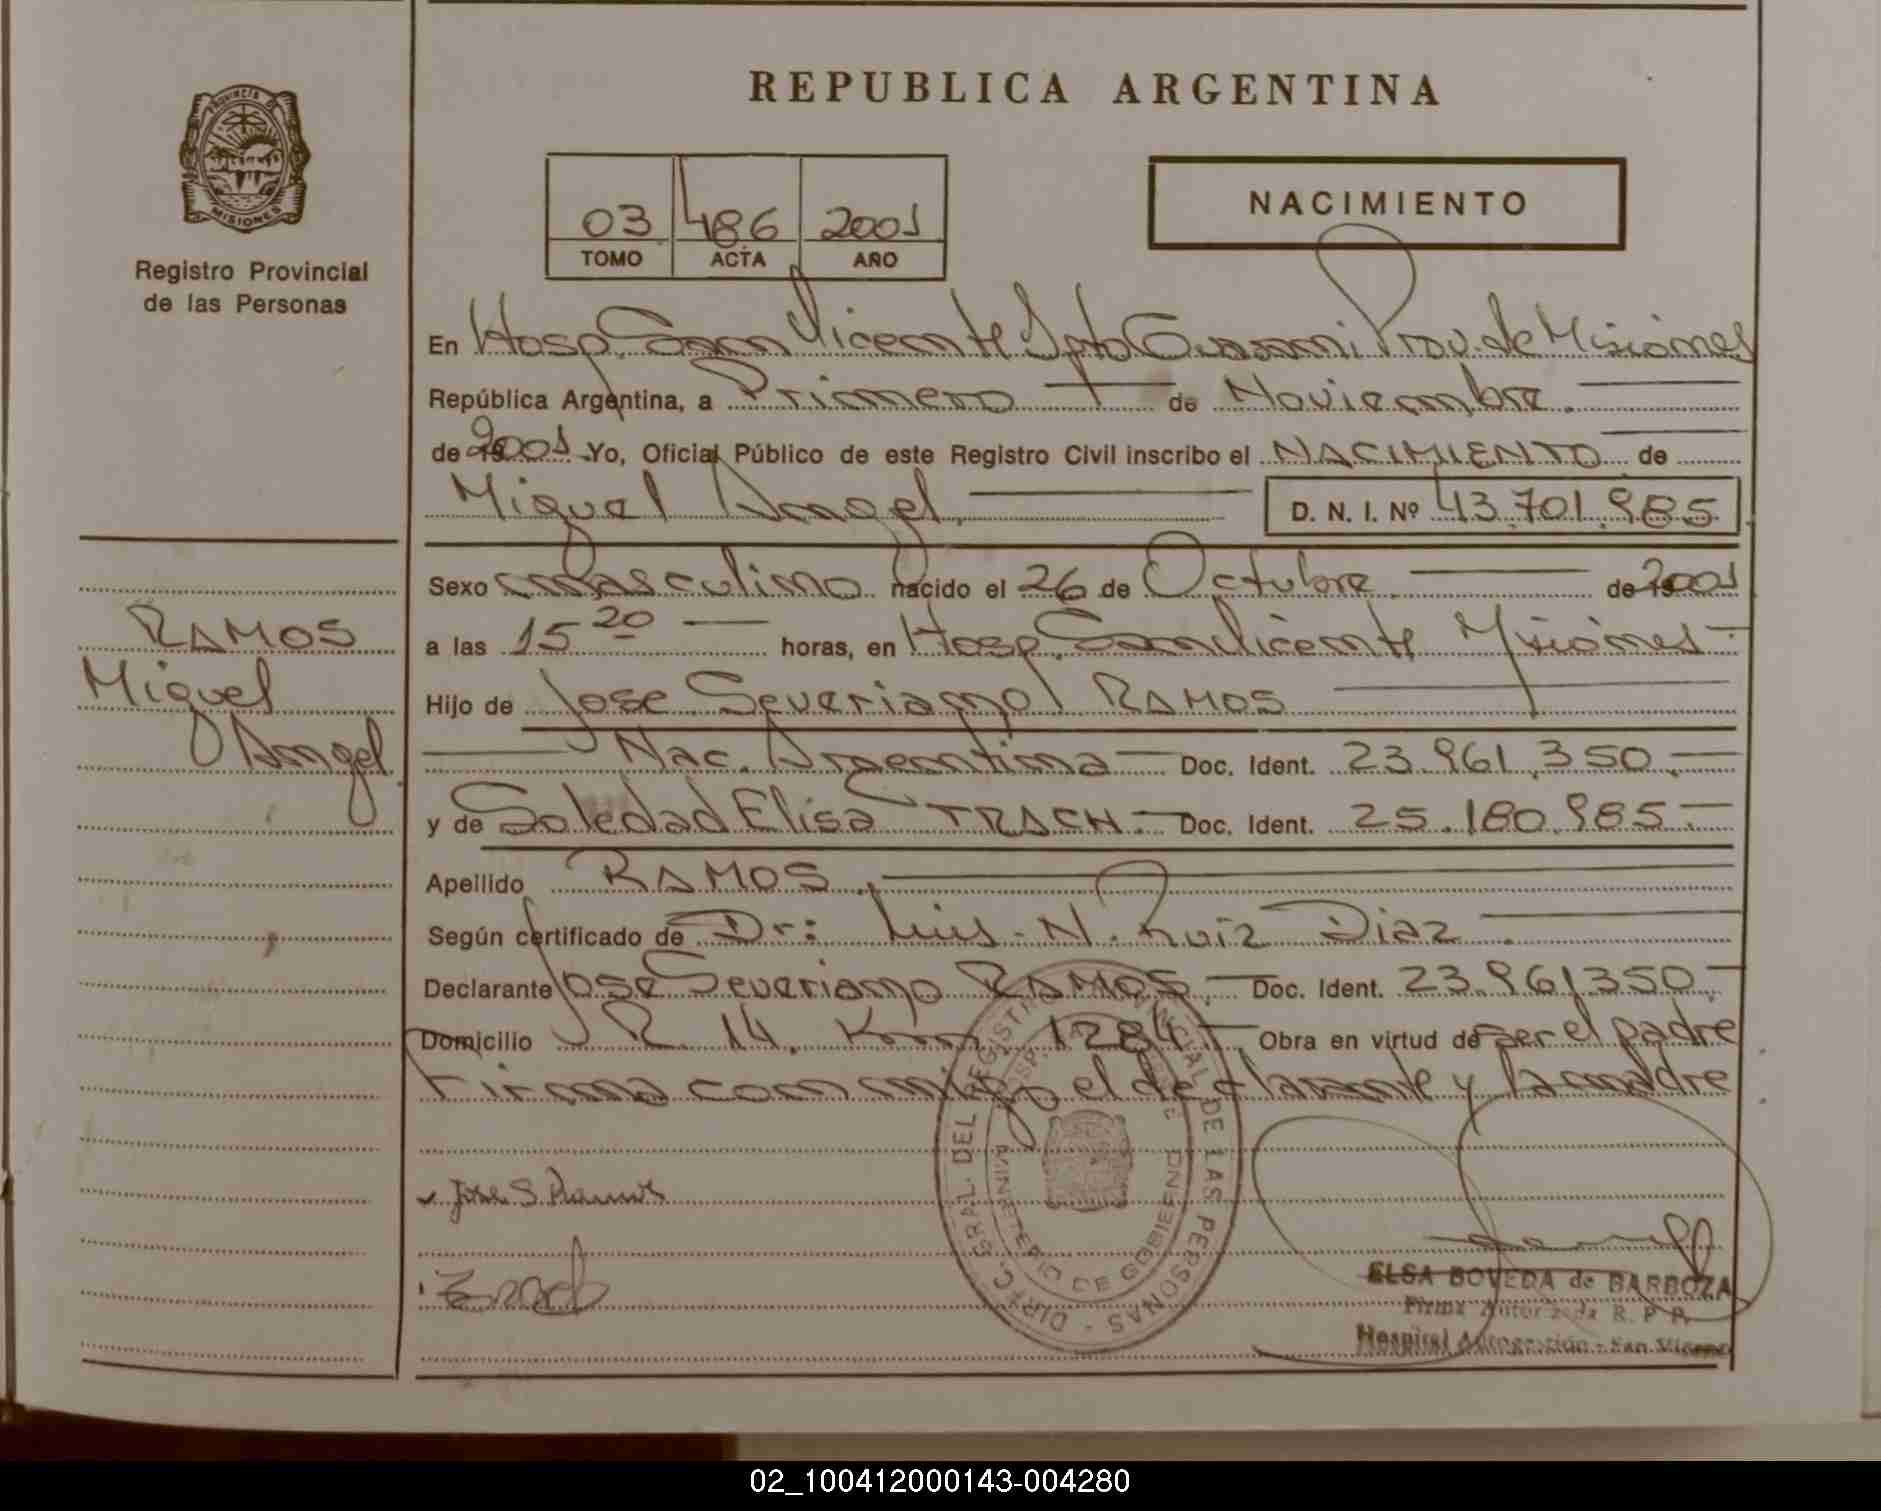 REPUBLICA ARGENTINA
PROVINCIA DE
MISIONES
Registro Provincial
de las Personas
03 486 2001
TOMO ACTA AÑO
NACIMIENTO
En Hosp. San Vicente Dpto Guarani Prov. de Misiones
República Argentina, a Primero de Noviembre
de 2001 Yo, Oficial Público de este Registro Civil inscribo el NACIMIENTO de
Miguel Angel. D. N. I. Nº 43.701.985
Sexo masculino nacido el 26 de Octubre de 2001
a las 15 20 horas, en Hosp. San Vicente Misiones
Hijo de Jose Severiano RAMOS
Nac. Argentina Doc. Ident. 23.961.350
y de Soledad Elisa TRACH Doc. Ident. 25.180.985
Apellido RAMOS
Según certificado de Dr: Luis N. Ruiz Diaz
Declarante Jose Severiano RAMOS Doc. Ident. 23.961350
Domicilio R. 14. Km 1284 Obra en virtud de ser el padre
Firma conmigo el declarante y la madre
RAMOS
Miguel
Angel
Jose S. Ramos
DIREC. GRAL. DEL REGISTRO PROVINCIAL DE LAS PERSONAS
MINISTERIO DE GOBIERNO
ELSA BOVEDA de BARBOZA
Firma Autorizada R. P. P.
Hospital Autogestión - San Vicente
02_100412000143-004280